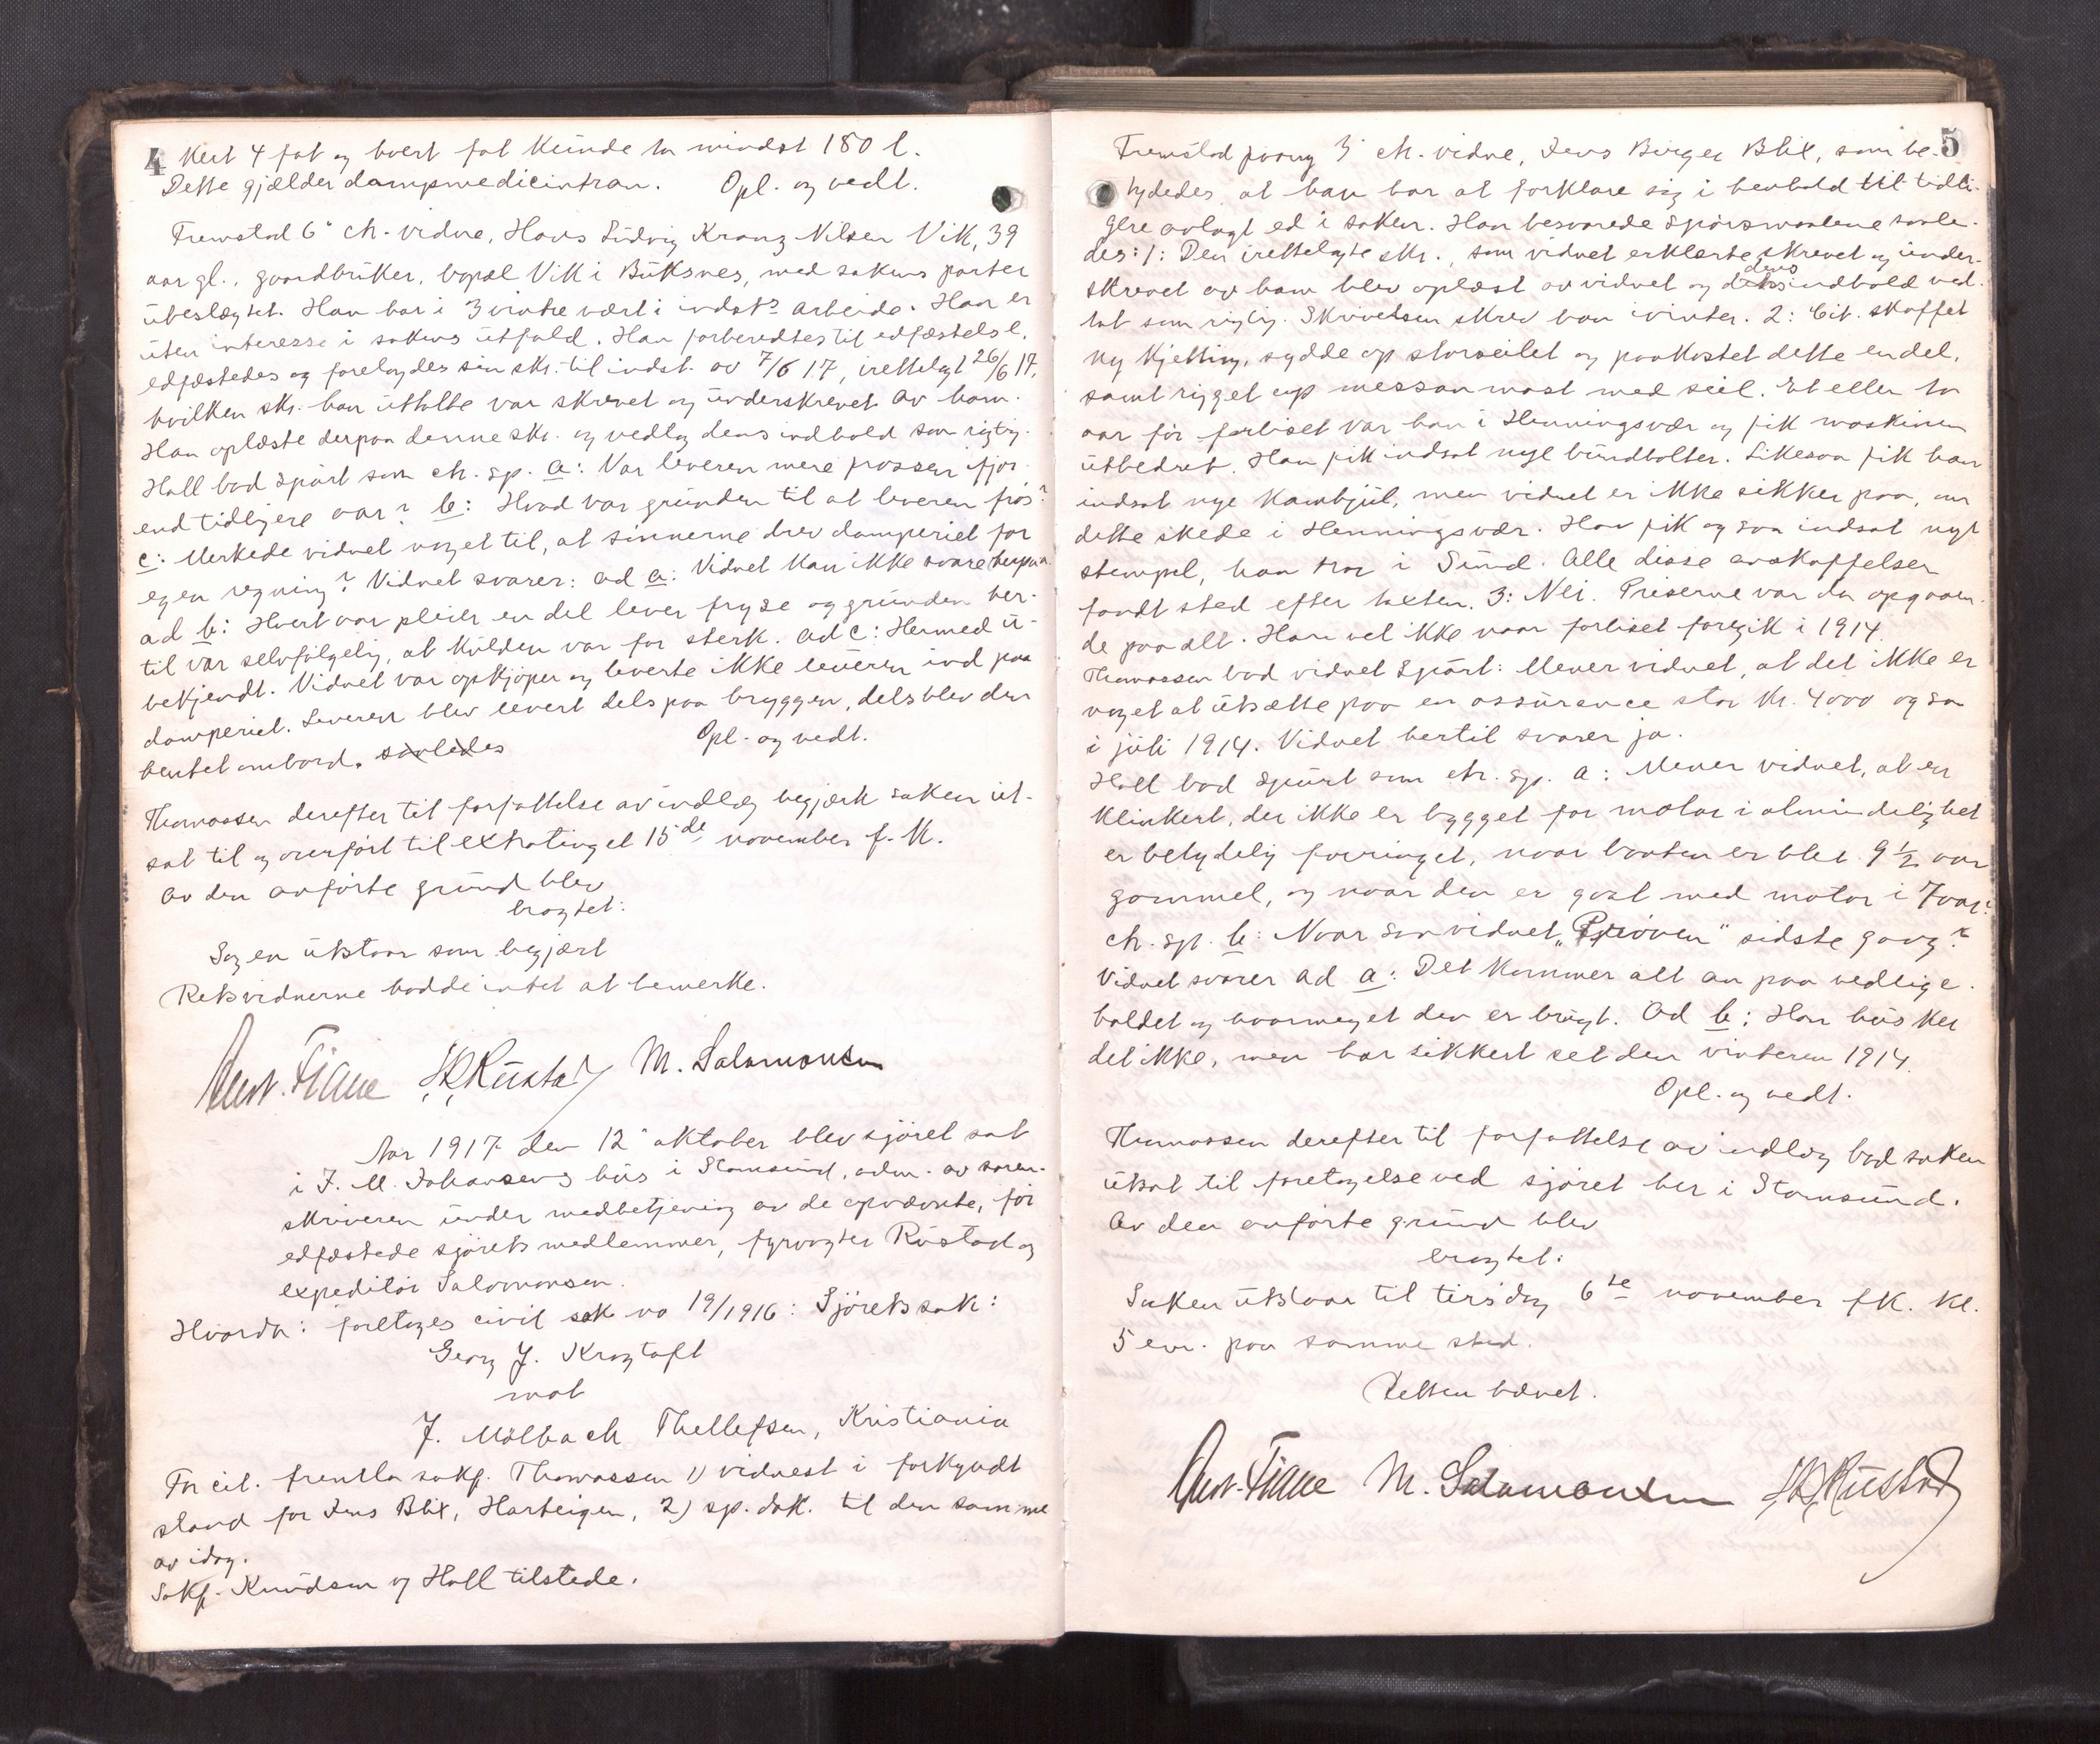 4
kert 4 fat og hvert fat kunde ta mindst 180 l.
Dette gjælder dampmedicintran. Opl. og vedt.
Fremstod 6" ctr. vidne, Hans Ludvig Kranz Nilsen Vik, 39
aar gl., gaardbruker, bopæl Vik i Buksnes, med sakens parter
ubeslægtet. Han har i 3 vintre vært i indst's arbeide. Han er
uten interesse i sakens utfald. Han forberedtes til edfæstelse,
edfæstedes og forelagdes sin skr. til indst. av 7/6 17, irettelagt 26/6 17,
hvilken skr. han uttalte var skrevet og underskrevet av ham.
Han oplæste derpaa denne skr. og vedtog dens indhold som rigtig.
Hall bad spurt som ctr. sp. a: Var leveren mere frossen ifjor
end tidligere aar? b: Hvad var grunden til at leveren frøs?
c: Merkede vidnet noget til, at sinnerne drev damperiet for
egen regning? Vidnet svarer: ad a: Vidnet kan ikke svare herpaa
ad b: Hvert aar pleier en del lever fryse og grunden her-
til var selvfølgelig, at kulden var for sterk. ad c: Hermed u-
bekjendt. Vidnet var opkjøper og leverte ikke leveren ind paa
damperiet. Leveren blev levert dels paa bryggen, dels blev den
hentet ombord. saaledes Opl. og vedt.
Thomassen derefter til forfattelse av indlæg begjærte saken ut-
sat til og overført til extratinget 15de november f. k.
Av den anførte grund blev
eragtet:
Sagen utstaar som begjært
Retsvidnerne hadde intet at bemerke.
Chr. Fiane J. R. Rustad M. Salamonsen
Aar 1917 den 12" oktober blev sjøret sat
i J. M. Johansens hus i Stamsund, adm. av soren-
skriveren under medbetjening av de opnævnte, før
edfæstede sjøretsmedlemmer, fyrvogter Rustad og
expeditør Salamonsen.
Hvorda: foretages civil sak no 19/1916: Sjøretssak:
Georg J. Kragtoft
mot
J. Mølbach Thellefsen, Kristiania
For cit. fremla sakf. Thomassen 1) vidnest i forkyndt
stand for Jens Blix, Harteigen, 2) sp. dok. til den samme
av idag.
Sakf. Knudsen og Hall tilstede.
5
Fremstod paany 3" ctr. vidne, Jens Birger Blix, som be-
tydedes, at han har at forklare sig i henhold til tidli-
gere avlagt ed i saken. Han besvarede spørsmaalene saale-
des: 1: Den irettelagte skr., som vidnet erklærte skrevet og under-
skrevet av ham blev oplæst av vidnet og dens indhold ved-
tat som rigtig. Skrivelsen skrev han ivinter. 2: Cit. skaffet
ny kjetting, sydde op storseilet og paakostet dette endel,
samt rigget op messan mast med seil. Et eller to
aar før forliset var han i Henningsvær og fik maskinen
utbedret. Han fik indsat nye bundbolter. Likesaa fik han
indsat nye kamhjul, men vidnet er ikke sikker paa, om
dette skede i Henningsvær. Han fik ogsaa indsat nyt
stempel, han tror i Sund. Alle disse anskaffelser
fandt sted efter taxten. 3: Nei. Priserne var da opgaaen-
de paa alt. Han vet ikke naar forliset foregik i 1914.
Thomassen bad vidnet spurt: Mener vidnet, at det ikke er
noget at utsætte paa en assurance stor kr. 4000 ogsaa
i juli 1914. Vidnet hertil svarer ja.
Hall bad spurt som ctr. sp. a: Mener vidnet, at en
klinkert, der ikke er bygget for motor i almindelighet
er betydelig forringet, naar baaten er blet 9 1/2 aar
gammel, og naar den er gaat med motor i 7 aar?
ctr. sp. b: Naar saa vidnet "Prøven" sidste gang?
Vidnet svarer ad a: Det kommer alt an paa vedlige-
holdet og hvormeget den er brugt. Ad b: Han husker
det ikke, men har sikkert set den vinteren 1914.
Opl. og vedt.
Thomassen derefter til forfattelse av indlæg bad saken
utsat til foretagelse ved sjøret her i Stamsund.
Av den anførte grund blev
eragtet:
Saken utstaar til tirsdag 6te november f.k. kl.
5 em. paa samme sted.
Retten hævet.
Chr. Fiane M. Salamonsen J. R. Rustad